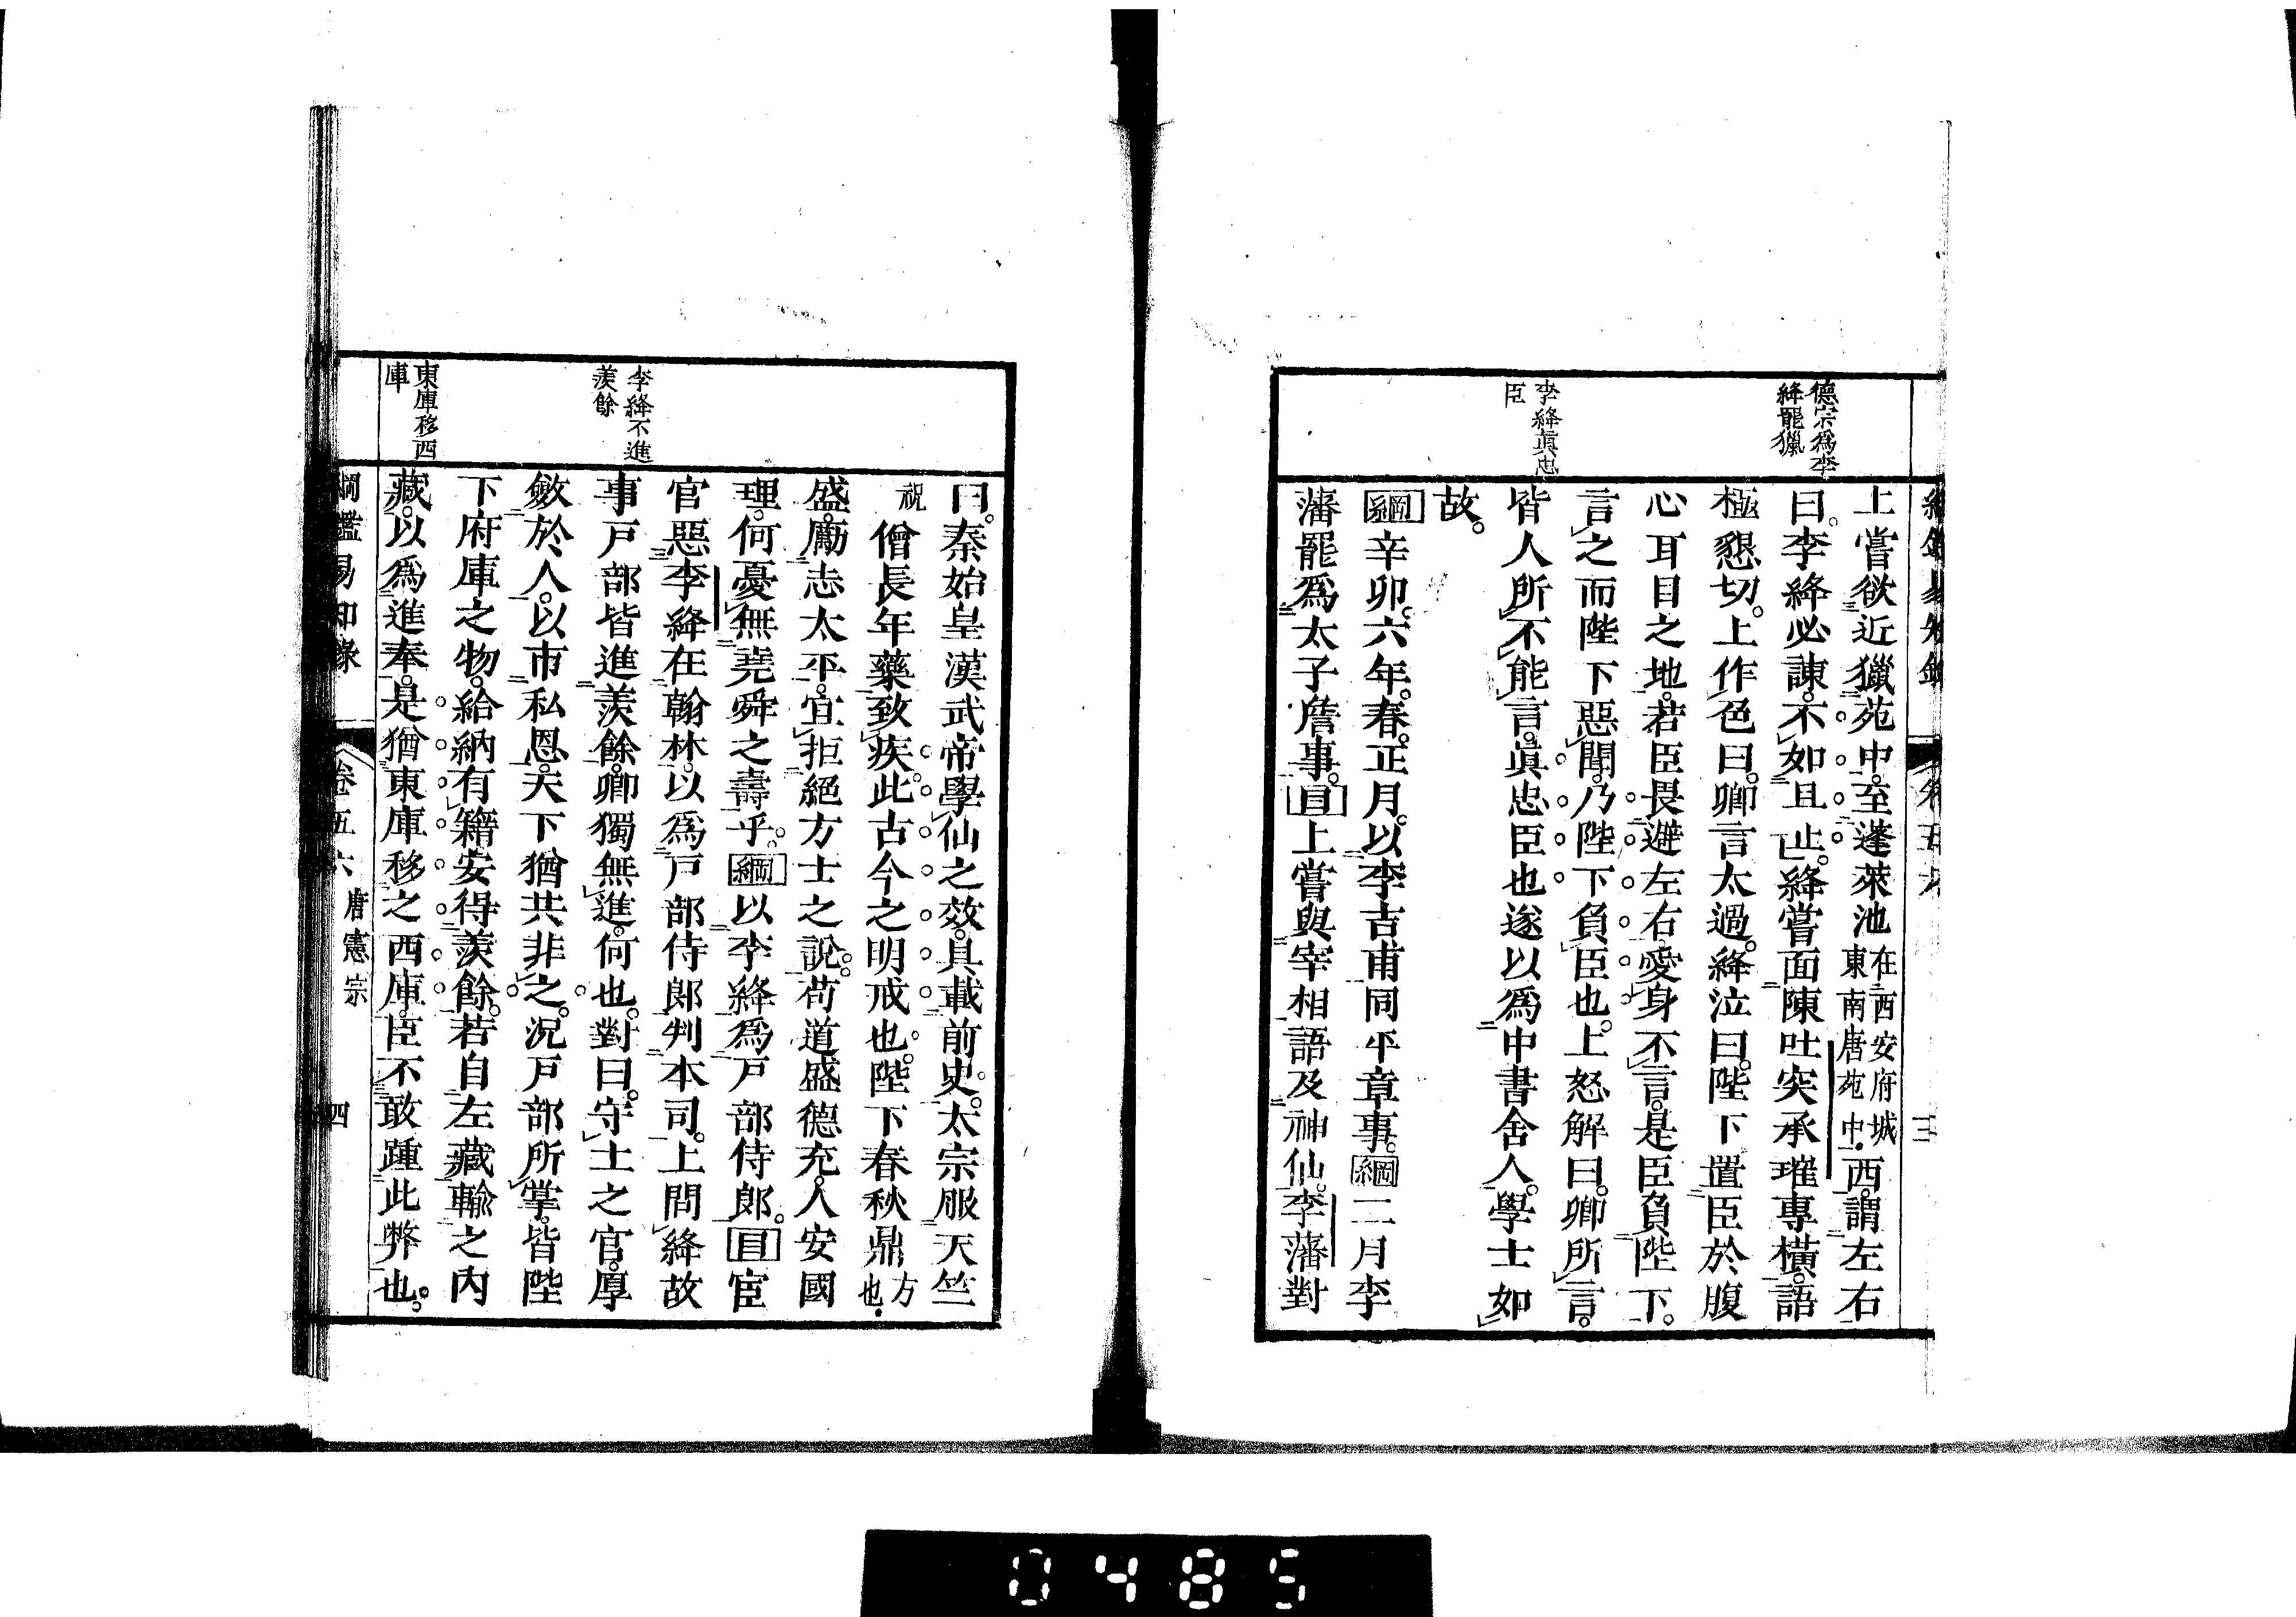 德宗爲李
絳罷獵
李絳眞忠
臣
上嘗欲近獵苑中。至蓬萊池在西安府城東南唐苑中西。謂左右
曰。李絳必諫。不如且止。絳嘗面陳吐突承璀專橫。語
極懇切。上作色曰。卿言太過。絳泣曰。陛下置臣於腹
心耳目之地。若臣畏避左右。愛身不言。是臣負陛下。
言之而陛下惡聞。乃陛下負臣也。上怒解曰。卿所言。
皆人所不能言。眞忠臣也。遂以爲中書舍人。學士如
故。
綱辛卯。六年。春。正月。以李吉甫同平章事。綱二月李
藩罷爲太子詹事。目上嘗與宰相語及神仙。李藩對
李絳不進
羨餘
東庫移西
庫
曰。秦始皇漢武帝學仙之效。具載前史。太宗服天竺
祝僧長年藥致疾。此古今之明戒也。陛下春秋鼎方也
盛。勵志太平。宜拒絕方士之說。苟道盛德充。人安國
理。何憂無堯舜之壽乎。綱以李絳爲戸部侍郎。目宦
官惡李絳在翰林。以爲戸部侍郎判本司。上問絳故
事戸部皆進羨餘。卿獨無進。何也。對曰。守土之官。厚
斂於人。以市私恩。天下猶共非之。況戸部所掌。皆陛
下府庫之物。給納有籍。安得羨餘。若自左藏輸之內
藏。以爲進奉。是猶東庫移之西庫。臣不敢踵此弊也。
綱鑑易知錄 卷五六 唐憲宗 四